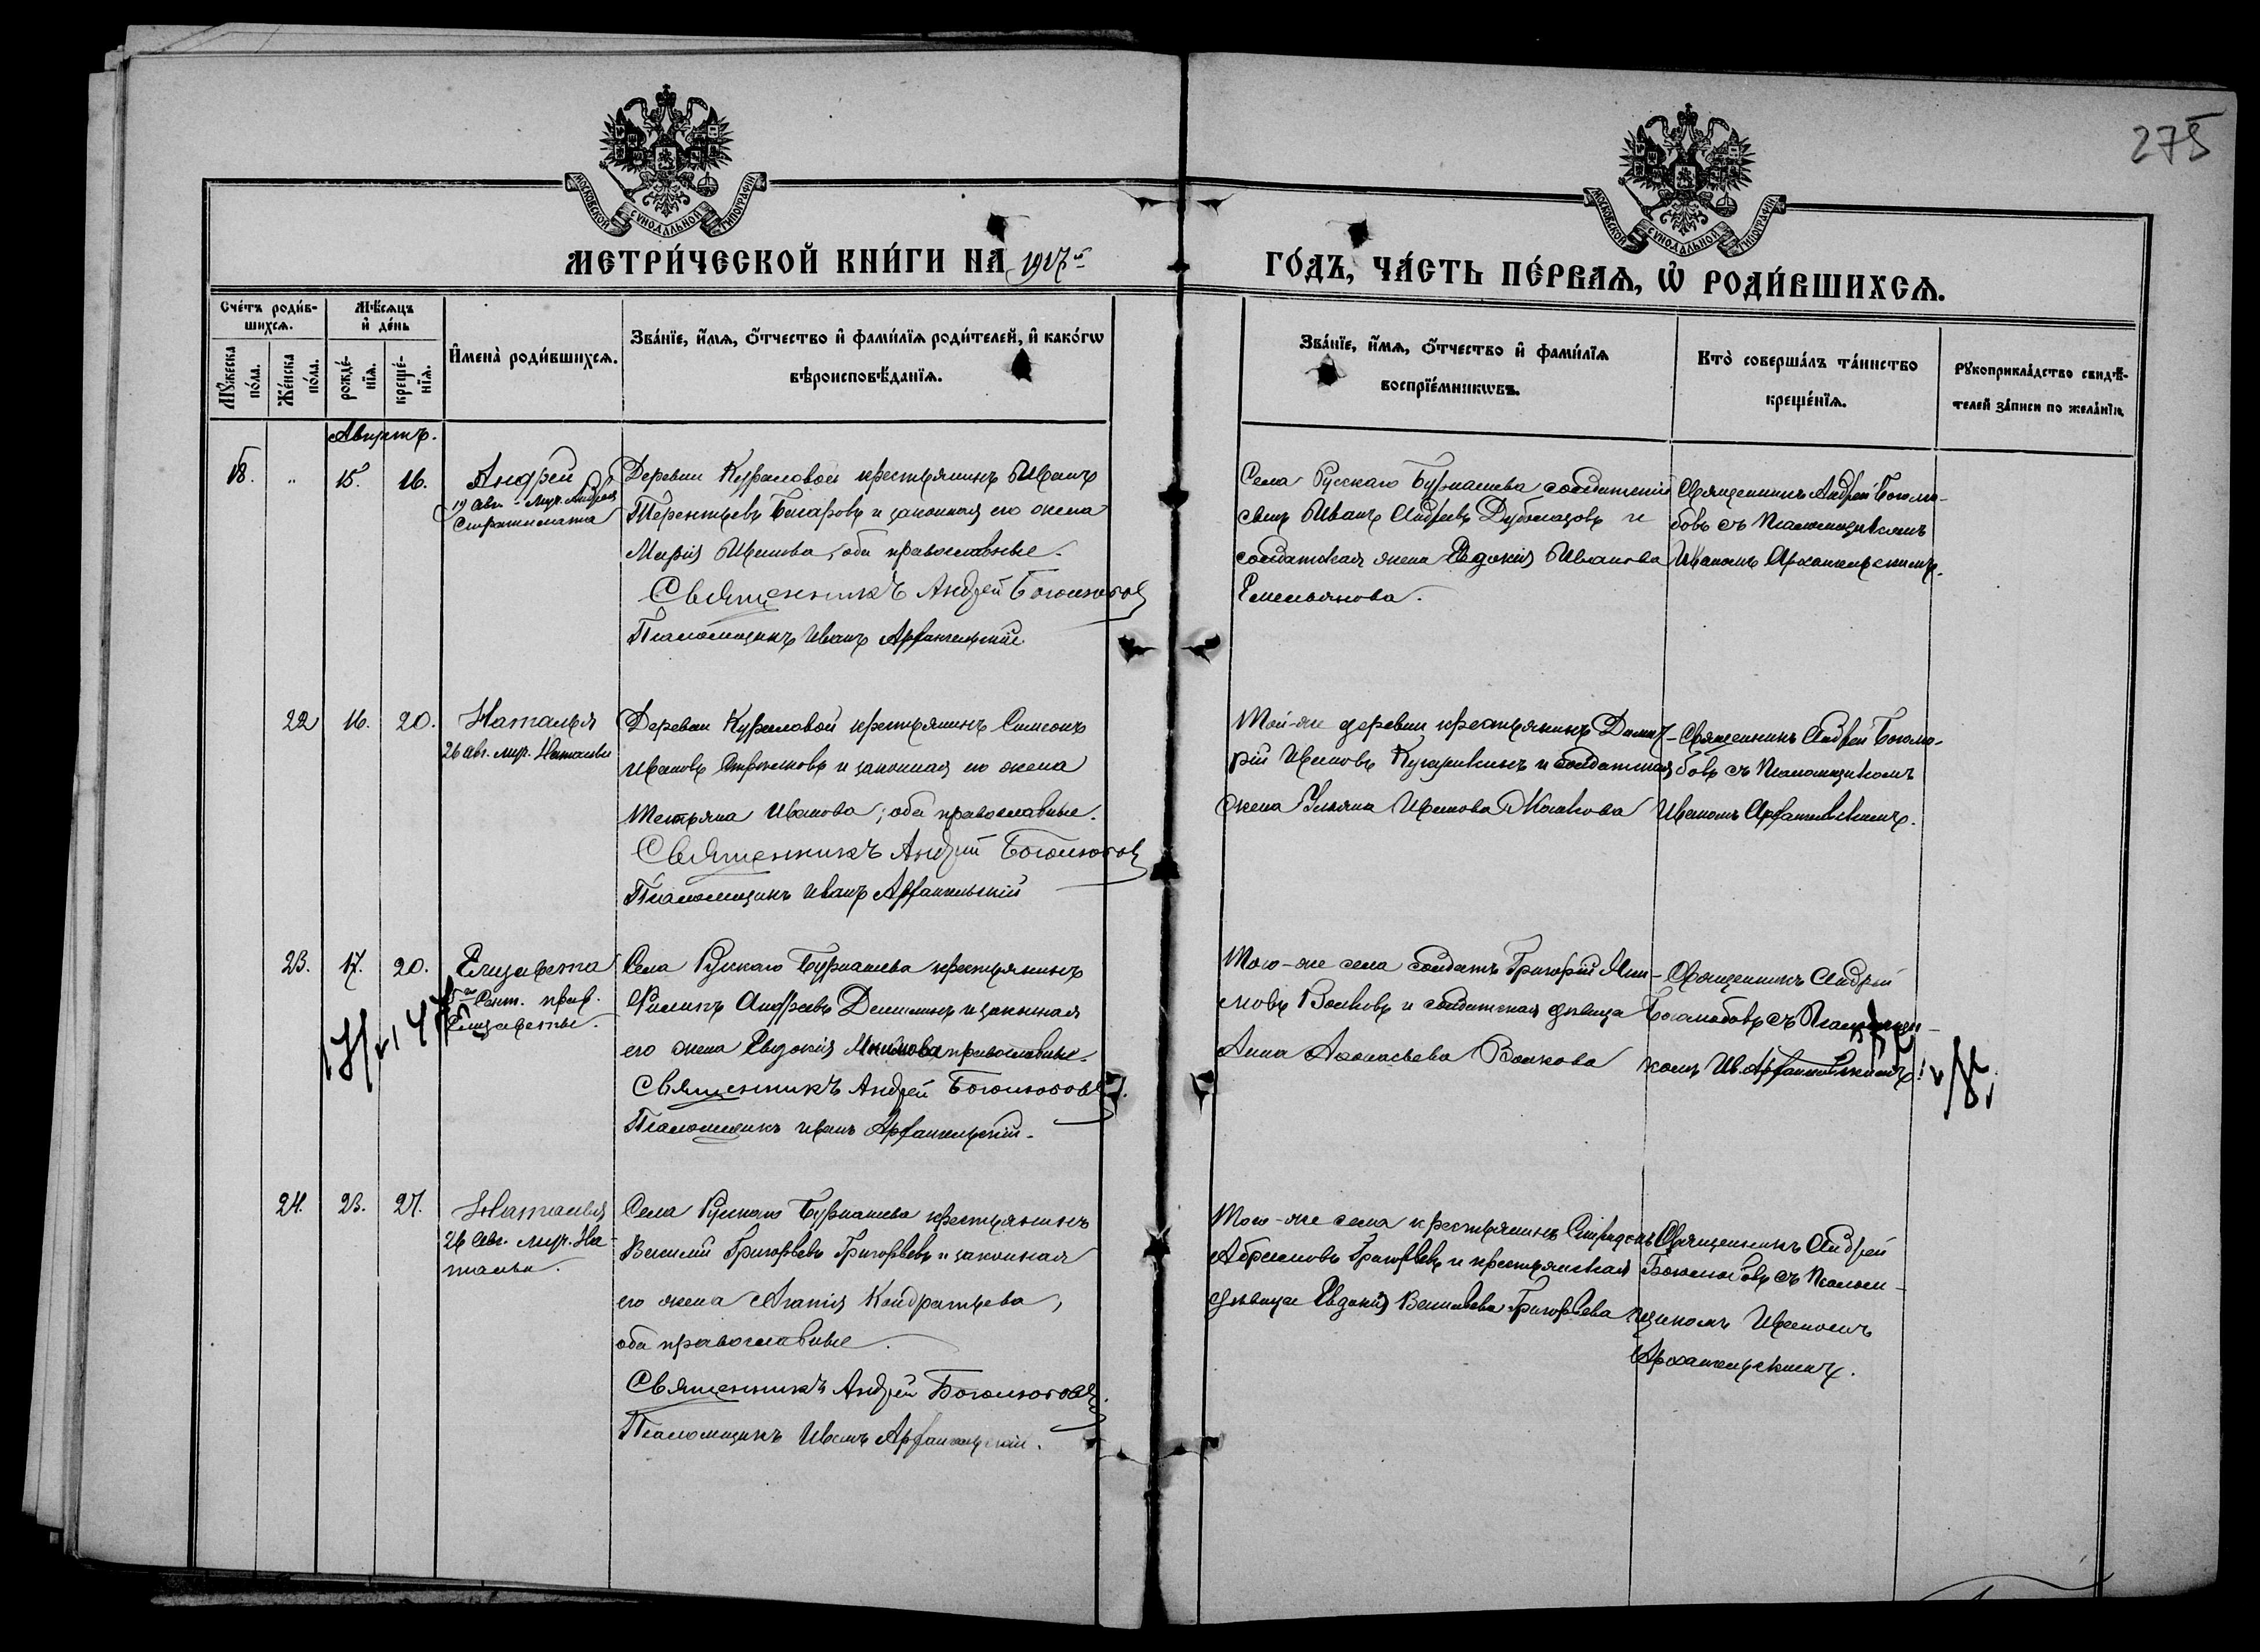 275
МОСКОВСКОЙ СѴНОДАЛЬНОЙ ТИПОГРАФІИ
МОСКОВСКОЙ СѴНОДАЛЬНОЙ ТИПОГРАФІИ
МЕТРИ́ЧЕСКОЙ КНИ́ГИ НА 1917й
ГО́ДЪ, ЧА́СТЬ ПЕ́РВАѦ, Ѡ҆ РОДИ́ВШИХСѦ.
Сче́тъ роди́в-
шихсѧ.
Мѣ́сѧцъ
и҆ де́нь
Мꙋ́жеска
по́ла.
Же́нска
по́ла.
рожде́-
нїѧ.
креще́-
нїѧ.
И҆мена̀ роди́вшихсѧ.
Зва́нїе, и҆́мѧ, ѻ҆́тчество и҆ фами́лїѧ роди́телей, и҆ како́гѡ
вѣроисповѣ́данїѧ.
Зва́нїе, и҆́мѧ, ѻ҆́тчество и҆ фами́лїѧ
воспрїе́мникѡвъ.
Кто̀ соверша́лъ та́инство
креще́нїѧ.
Рꙋкоприкла́дство свидѣ́-
телей за́писи по жела́нїю.
Августъ.
18. " 15. 16. Андрей
19 Авг. - Муч. Андрея
Стратилата
Деревни Кураловой крестьянинъ Иванъ
Терентьевъ и законная его жена
Марія Иванова, оба православные.
Священникъ Андрей Боголюбовъ
Псаломщикъ Иванъ Архангельскій
Села Русскаго Бурнашева солдатскій
сынъ Иванъ Андреевъ и
солдатская жена Евдокія Иванова
Емельянова.
Священникъ Андрей Боголю-
бовъ съ Псаломщикомъ
Иваномъ Архангельскимъ.
22 16. 20. Наталья
26 Авг. муч. Натальи
Деревни Кураловой крестьянинъ Симеонъ
Ивановъ Стрелковъ и законная его жена
Татьяна Иванова; оба православные.
Священникъ Андрей Боголюбовъ
Псаломщикъ Иванъ Архангельскій
Той-же деревни крестьянинъ Димит-
рій Ивановъ и солдатская
жена Ульяна Иванова
Священникъ Андрей Боголю-
бовъ съ Псаломщикомъ
Иваномъ Архангельскимъ.
23. 17. 20. Елизавета
5го Сент. прав.
Елизаветы.
Села Русскаго Бурнашева крестьянинъ
Филипъ Андреевъ и законная
его жена Евдокія православные.
Священникъ Андрей Боголюбовъ.
Псаломщикъ Иванъ Архангельскій.
Того-же села солдатъ Григорій
Волковъ и солдатская девица
Анна Афонасьева Волкова
Священникъ Андрей
Боголюбовъ съ Псаломщи-
комъ Ив. Архангельскимъ.
24. 23. 27. Наталья
26 Авг. муч. На-
тальи.
Села Русскаго Бурнашева крестьянинъ
Василій Григорьевъ Григорьевъ и законная
его жена Агапія Кондратьева,
оба православные.
Священникъ Андрей Боголюбовъ.
Псаломщикъ Иванъ Архангельскій.
Того-же села крестьянинъ Спиридонъ
Абрамовъ Григорьевъ и крестьянская
девица Евдокія Васильева Григорьева
Священникъ Андрей
Боголюбовъ съ Псалом-
щикомъ Иваномъ
Архангельскимъ.